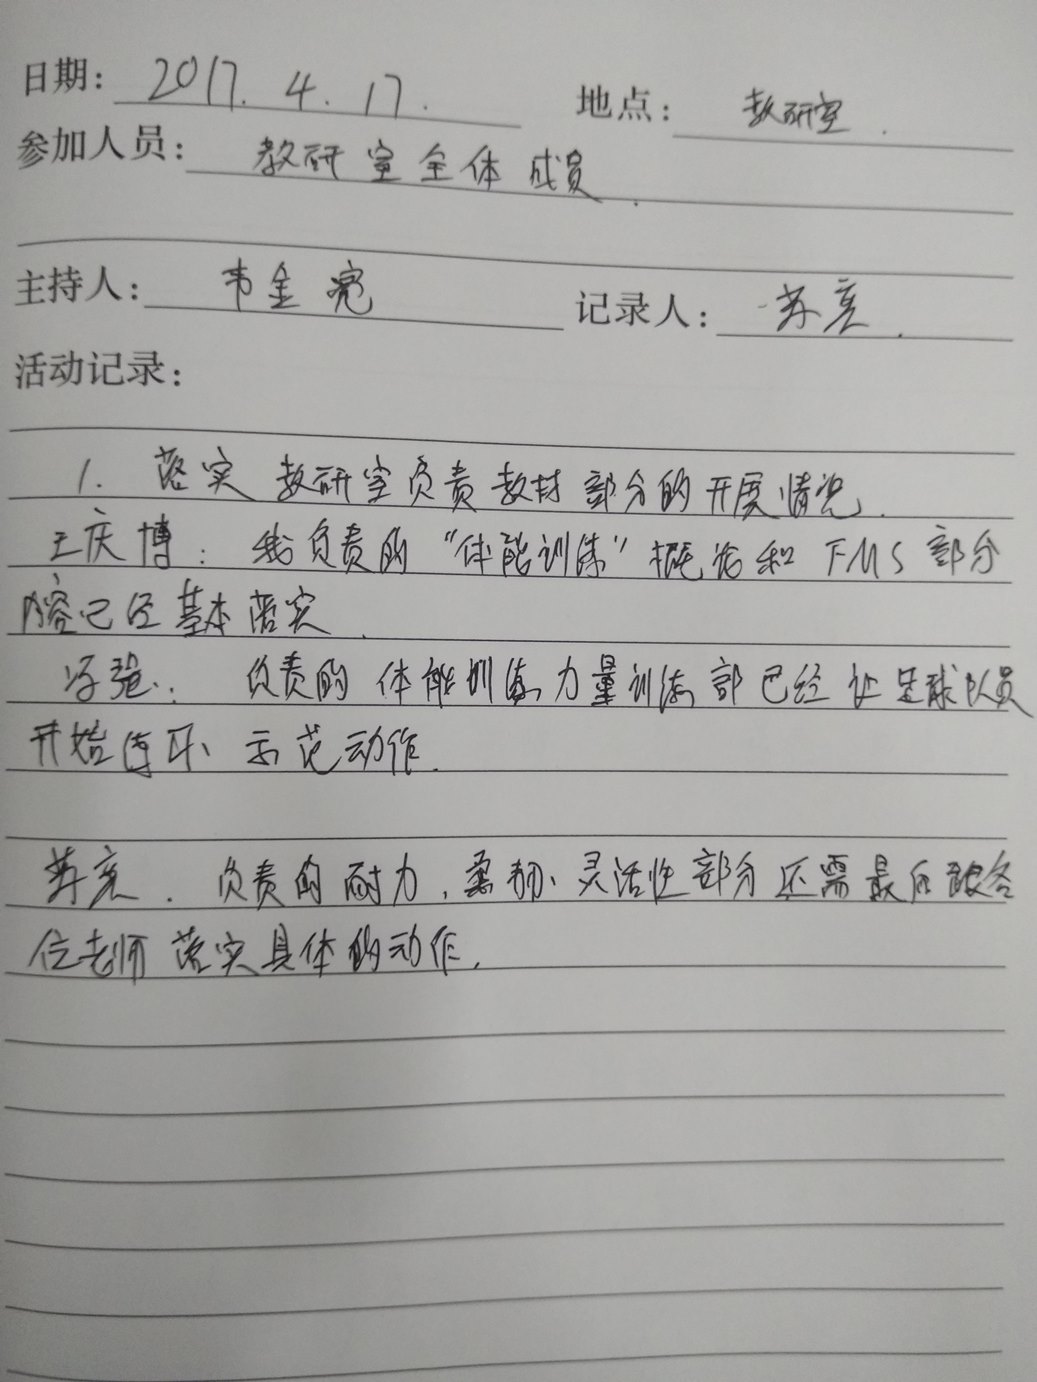 日期: 2017. 4. 17. 地点: 教研室.
参加人员: 教研室全体成员.
主持人: 韦金亮 记录人: 苏亮.
活动记录:
1. 落实教研室负责教材部分的开展情况.
王庆博: 我负责的“体能训练”概论和FMS部分
内容已经基本落实.
冯强: 负责的体能训练力量训练部已经让足球队员
开始 示范动作.
苏亮. 负责的耐力,柔韧、灵活性部分还需最后 各
位老师落实具体的动作.